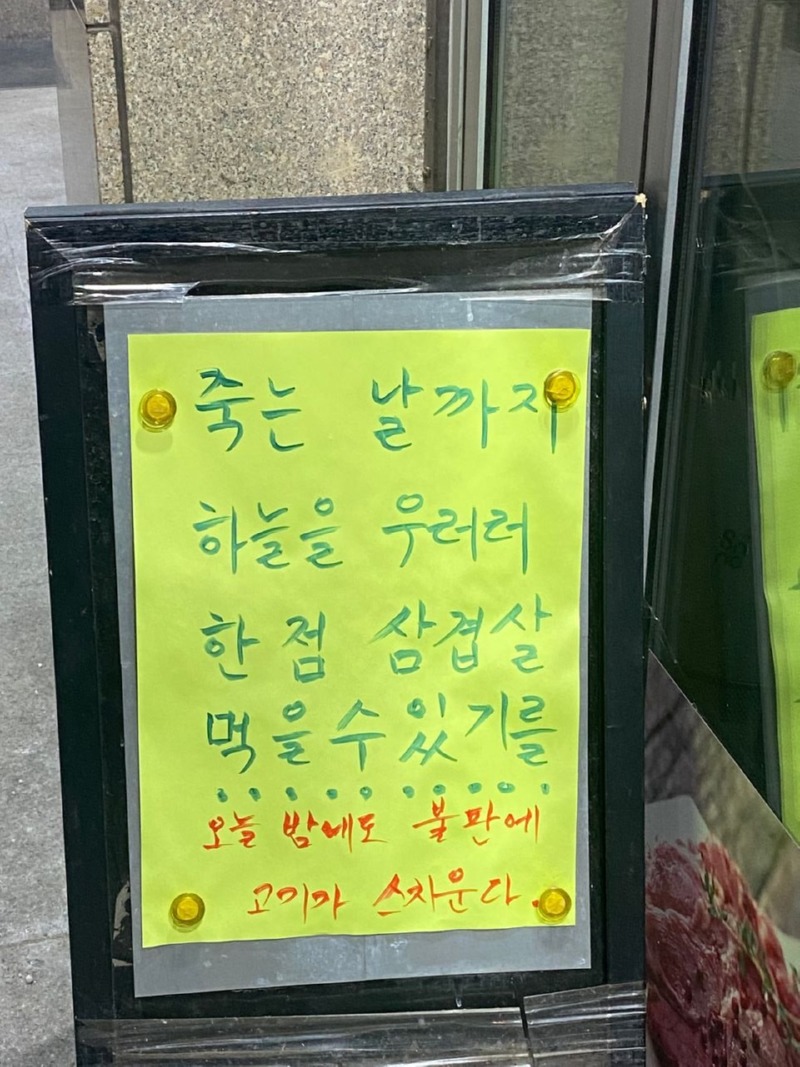 죽는 날까지
하늘을 우러러
한 점 삼겹살
먹을 수 있기를
오늘 밤에도 불판에
고기가 스치운다.